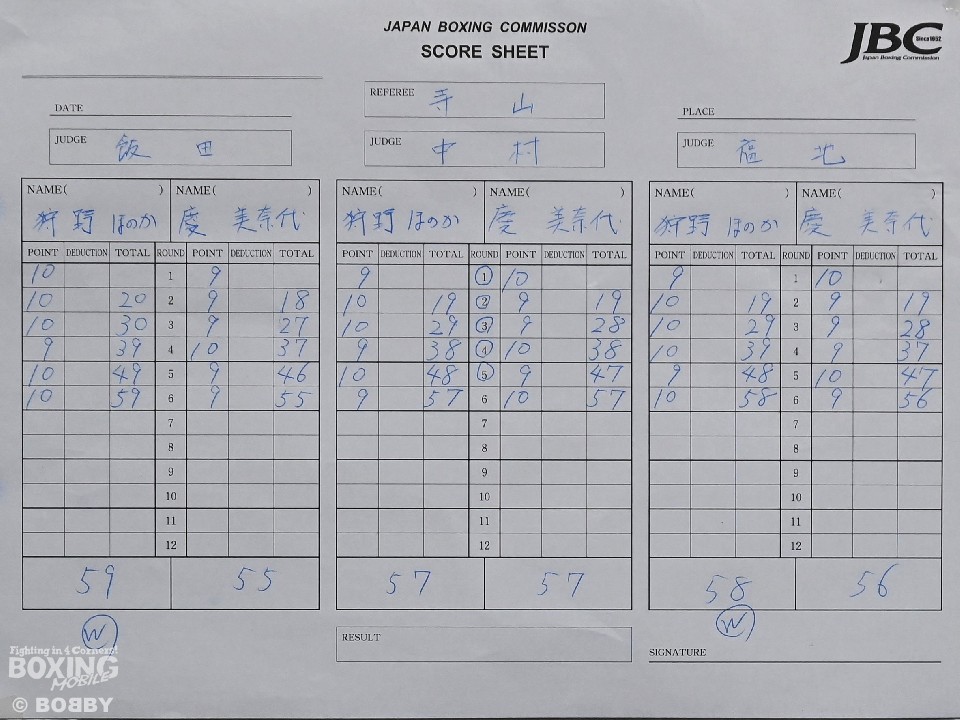 JAPAN BOXING COMMISSON
SCORE SHEET
JBC Since1952
Japan Boxing Commission
DATE
REFEREE 寺 山
PLACE
JUDGE 飯 田
JUDGE 中 村
JUDGE 福 地
NAME( ) NAME( ) NAME( ) NAME( ) NAME( ) NAME( )
狩野 ほのか 慶 美奈代 狩野 ほのか 慶 美奈代 狩野 ほのか 慶 美奈代
POINT DEDUCTION TOTAL ROUND POINT DEDUCTION TOTAL POINT DEDUCTION TOTAL ROUND POINT DEDUCTION TOTAL POINT DEDUCTION TOTAL ROUND POINT DEDUCTION TOTAL
10 1 9 9 1 10 9 1 10
10 20 2 9 18 10 19 2 9 19 10 19 2 9 19
10 30 3 9 27 10 29 3 9 28 10 29 3 9 28
9 39 4 10 37 9 38 4 10 38 10 39 4 9 37
10 49 5 9 46 10 48 5 9 47 9 48 5 10 47
10 59 6 9 55 9 57 6 10 57 10 58 6 9 56
7 7 7
8 8 8
9 9 9
10 10 10
11 11 11
12 12 12
59 55 57 57 58 56
W W
RESULT
SIGNATURE
Fighting in 4 Corners!
BOXING
MOBILE
© BOBBY